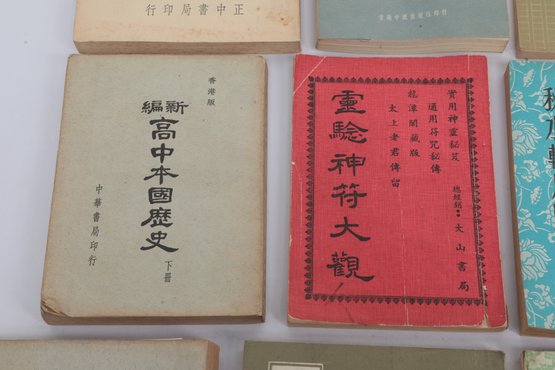 正中書局印行
香港版
新編
高中本國歷史
下冊
中華書局印行
實用神靈秘笈
通用符咒秘傳
龍潭閣藏版
太上老君傳留
靈驗神符大觀
總經銷：大山書局